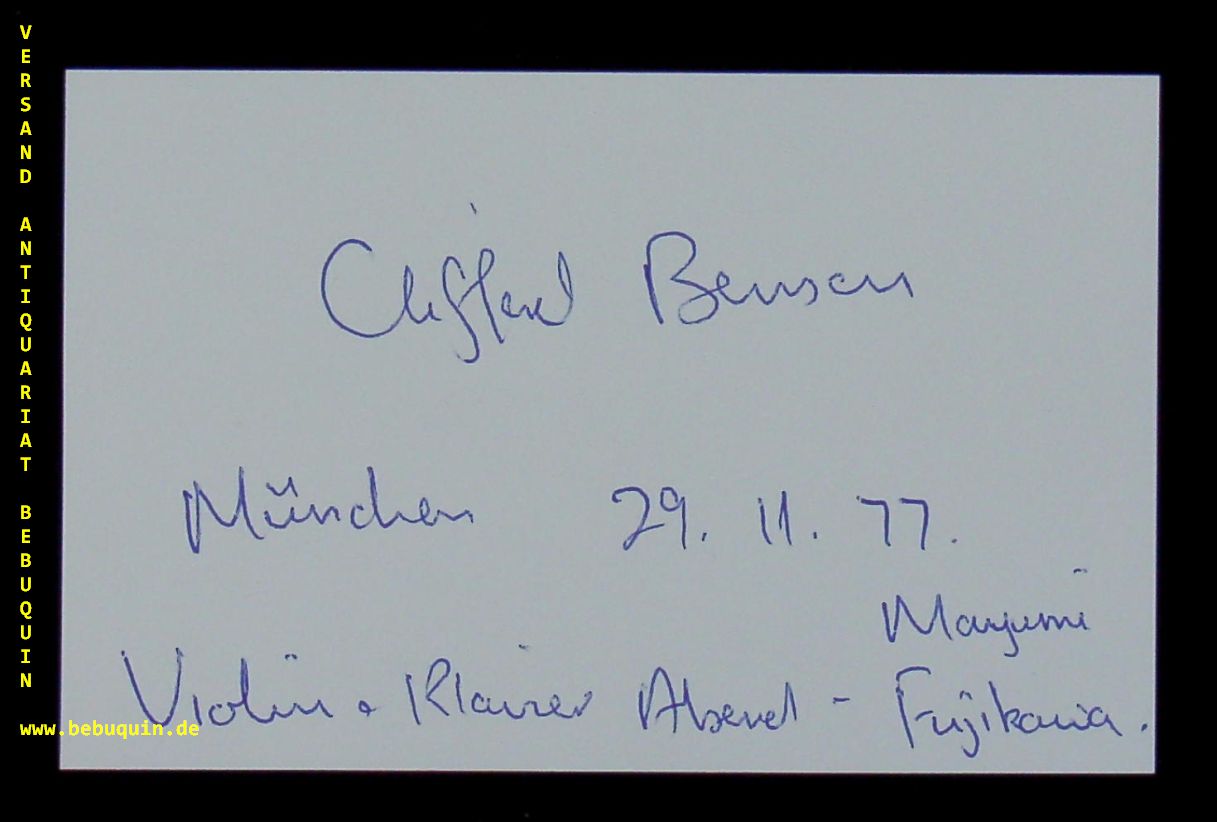 VERSAND ANTIQUARIAT BEBUQUIN
Clifford Benson
München 29. 11. 77.
Mayumi
Violin + Klavier Abend - Fujikawa.
www.bebuquin.de